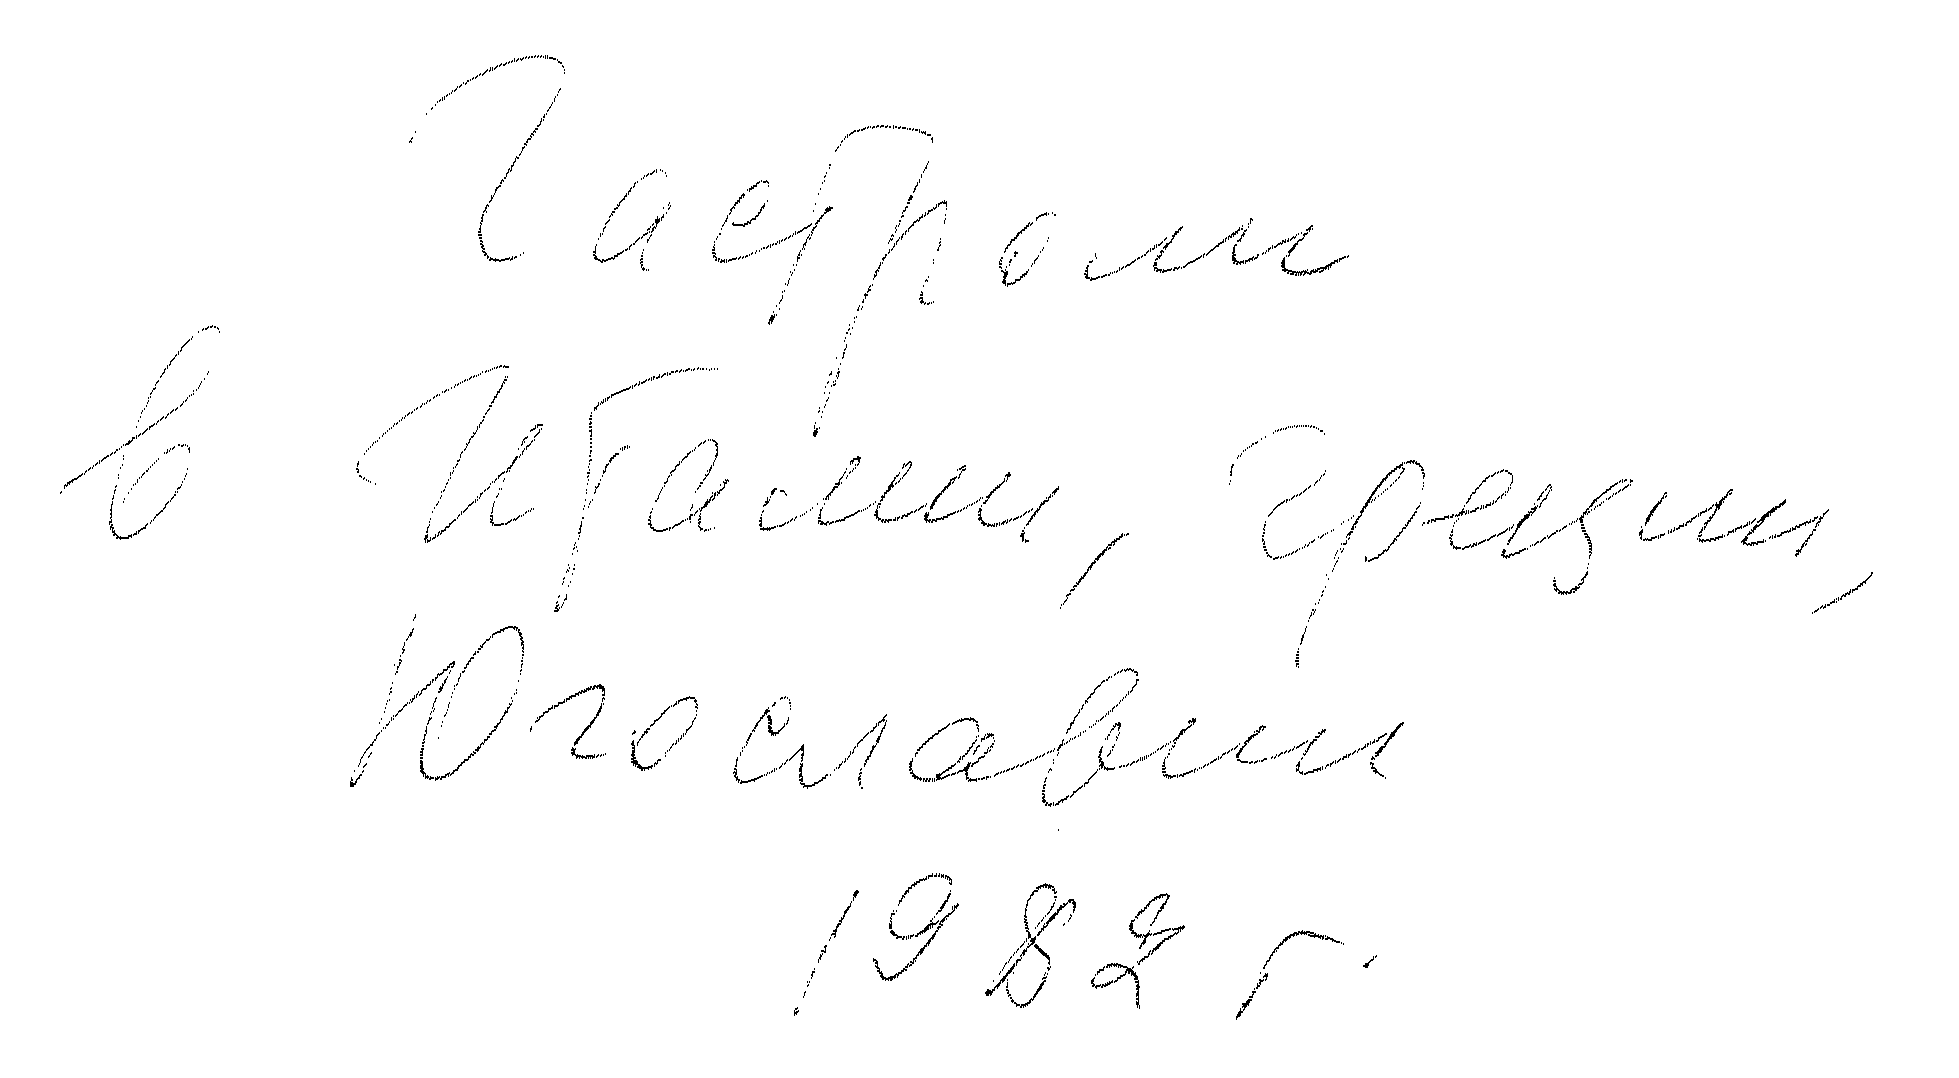 Гастроли
в Италии, Греции,
Югославии
1982 г.